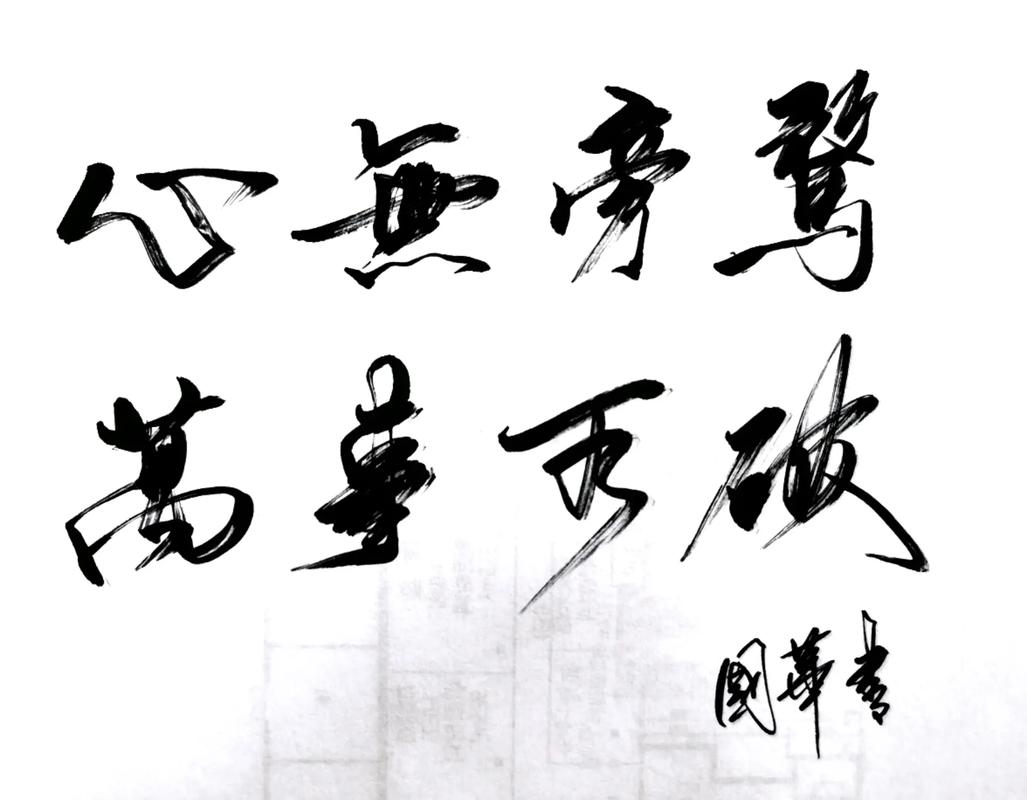 心無旁騖
萬事可破
國華書